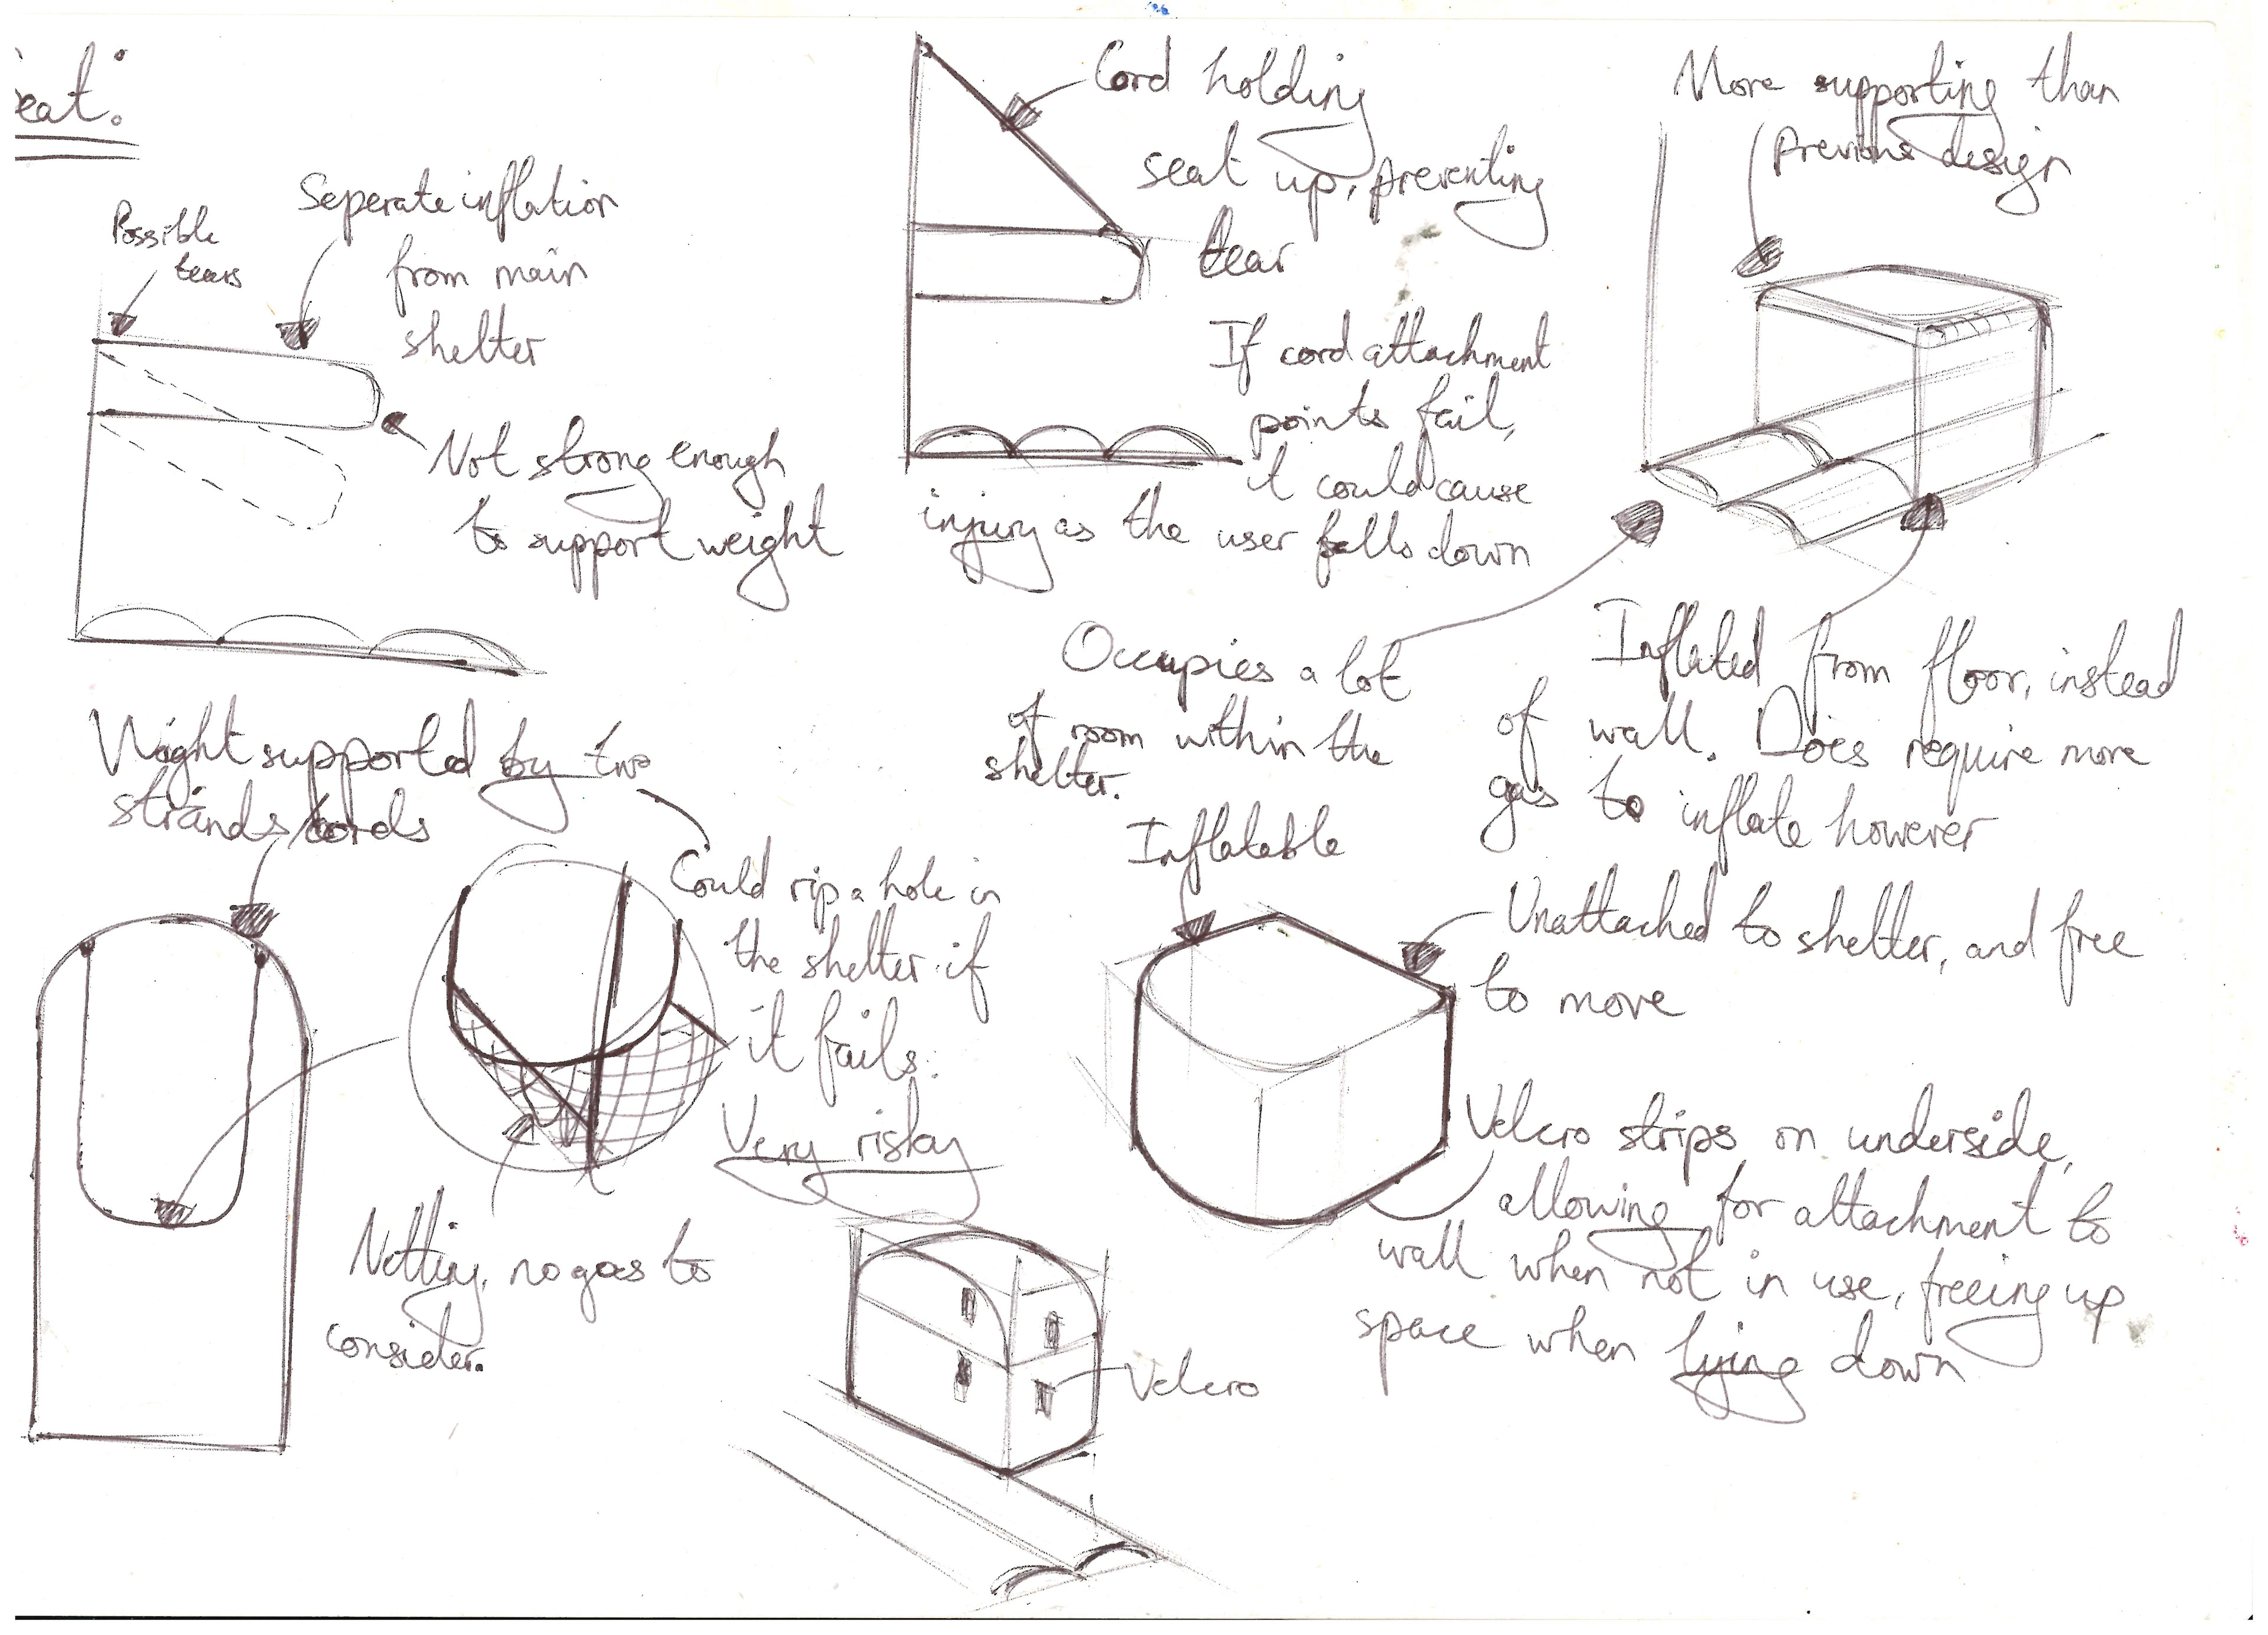 eat:
Possible
tears
Seperate inflation
from main
shelter
Not strong enough
to support weight
Cord holding
seat up, preventing
tear
If cord attachment
points fail,
it could cause
injury as the user falls down
More supporting than
previous design
Occupies a lot
of room within the
shelter.
Inflated from floor, instead
of wall. Does require more
gas to inflate however
Weight supported by two
strands/cords
Could rip a hole in
the shelter if
it fails.
Very risky
Netting, no gas to
consider.
Inflatable
Unattached to shelter, and free
to move
Velcro strips on underside,
allowing for attachment to
wall when not in use, freeing up
space when lying down
Velcro